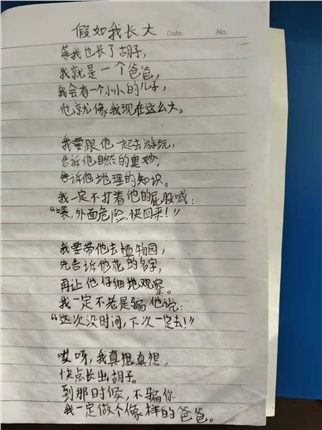 假如我长大
Date.
No.
等我也长了胡子,
我就是一个爸爸,
我会有一个小小的儿子,
他就像我现在这么大。
我要跟他一起去游玩,
告诉他自然的奥妙,
告诉他地理的知识。
我一定不打着他的屁股喊:
“喂,外面危险,快回来!”
我要带他去植物园,
先告诉他花的名字,
再让他仔细地观察。
我一定不老是骗他说:
“这次没时间,下次一定去!”
哎呀,我真想真想,
快点长出胡子。
到那时候,不骗你
我一定做个像样的爸爸。